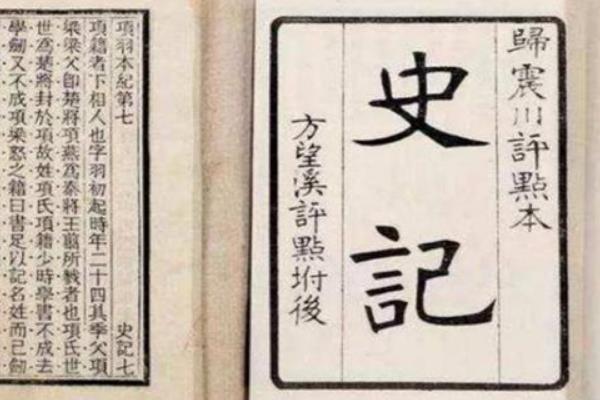 歸震川評點本
史記
方望溪評點坿後
項羽本紀第七 史記七
項籍者下相人也字羽初起時年二十四其季父項
梁梁父卽楚將項燕爲秦將王翦所戮者也項氏世
世爲楚將封於項故姓項氏項籍少時學書不成去
學劍又不成項梁怒之籍曰書足以記名姓而已劍